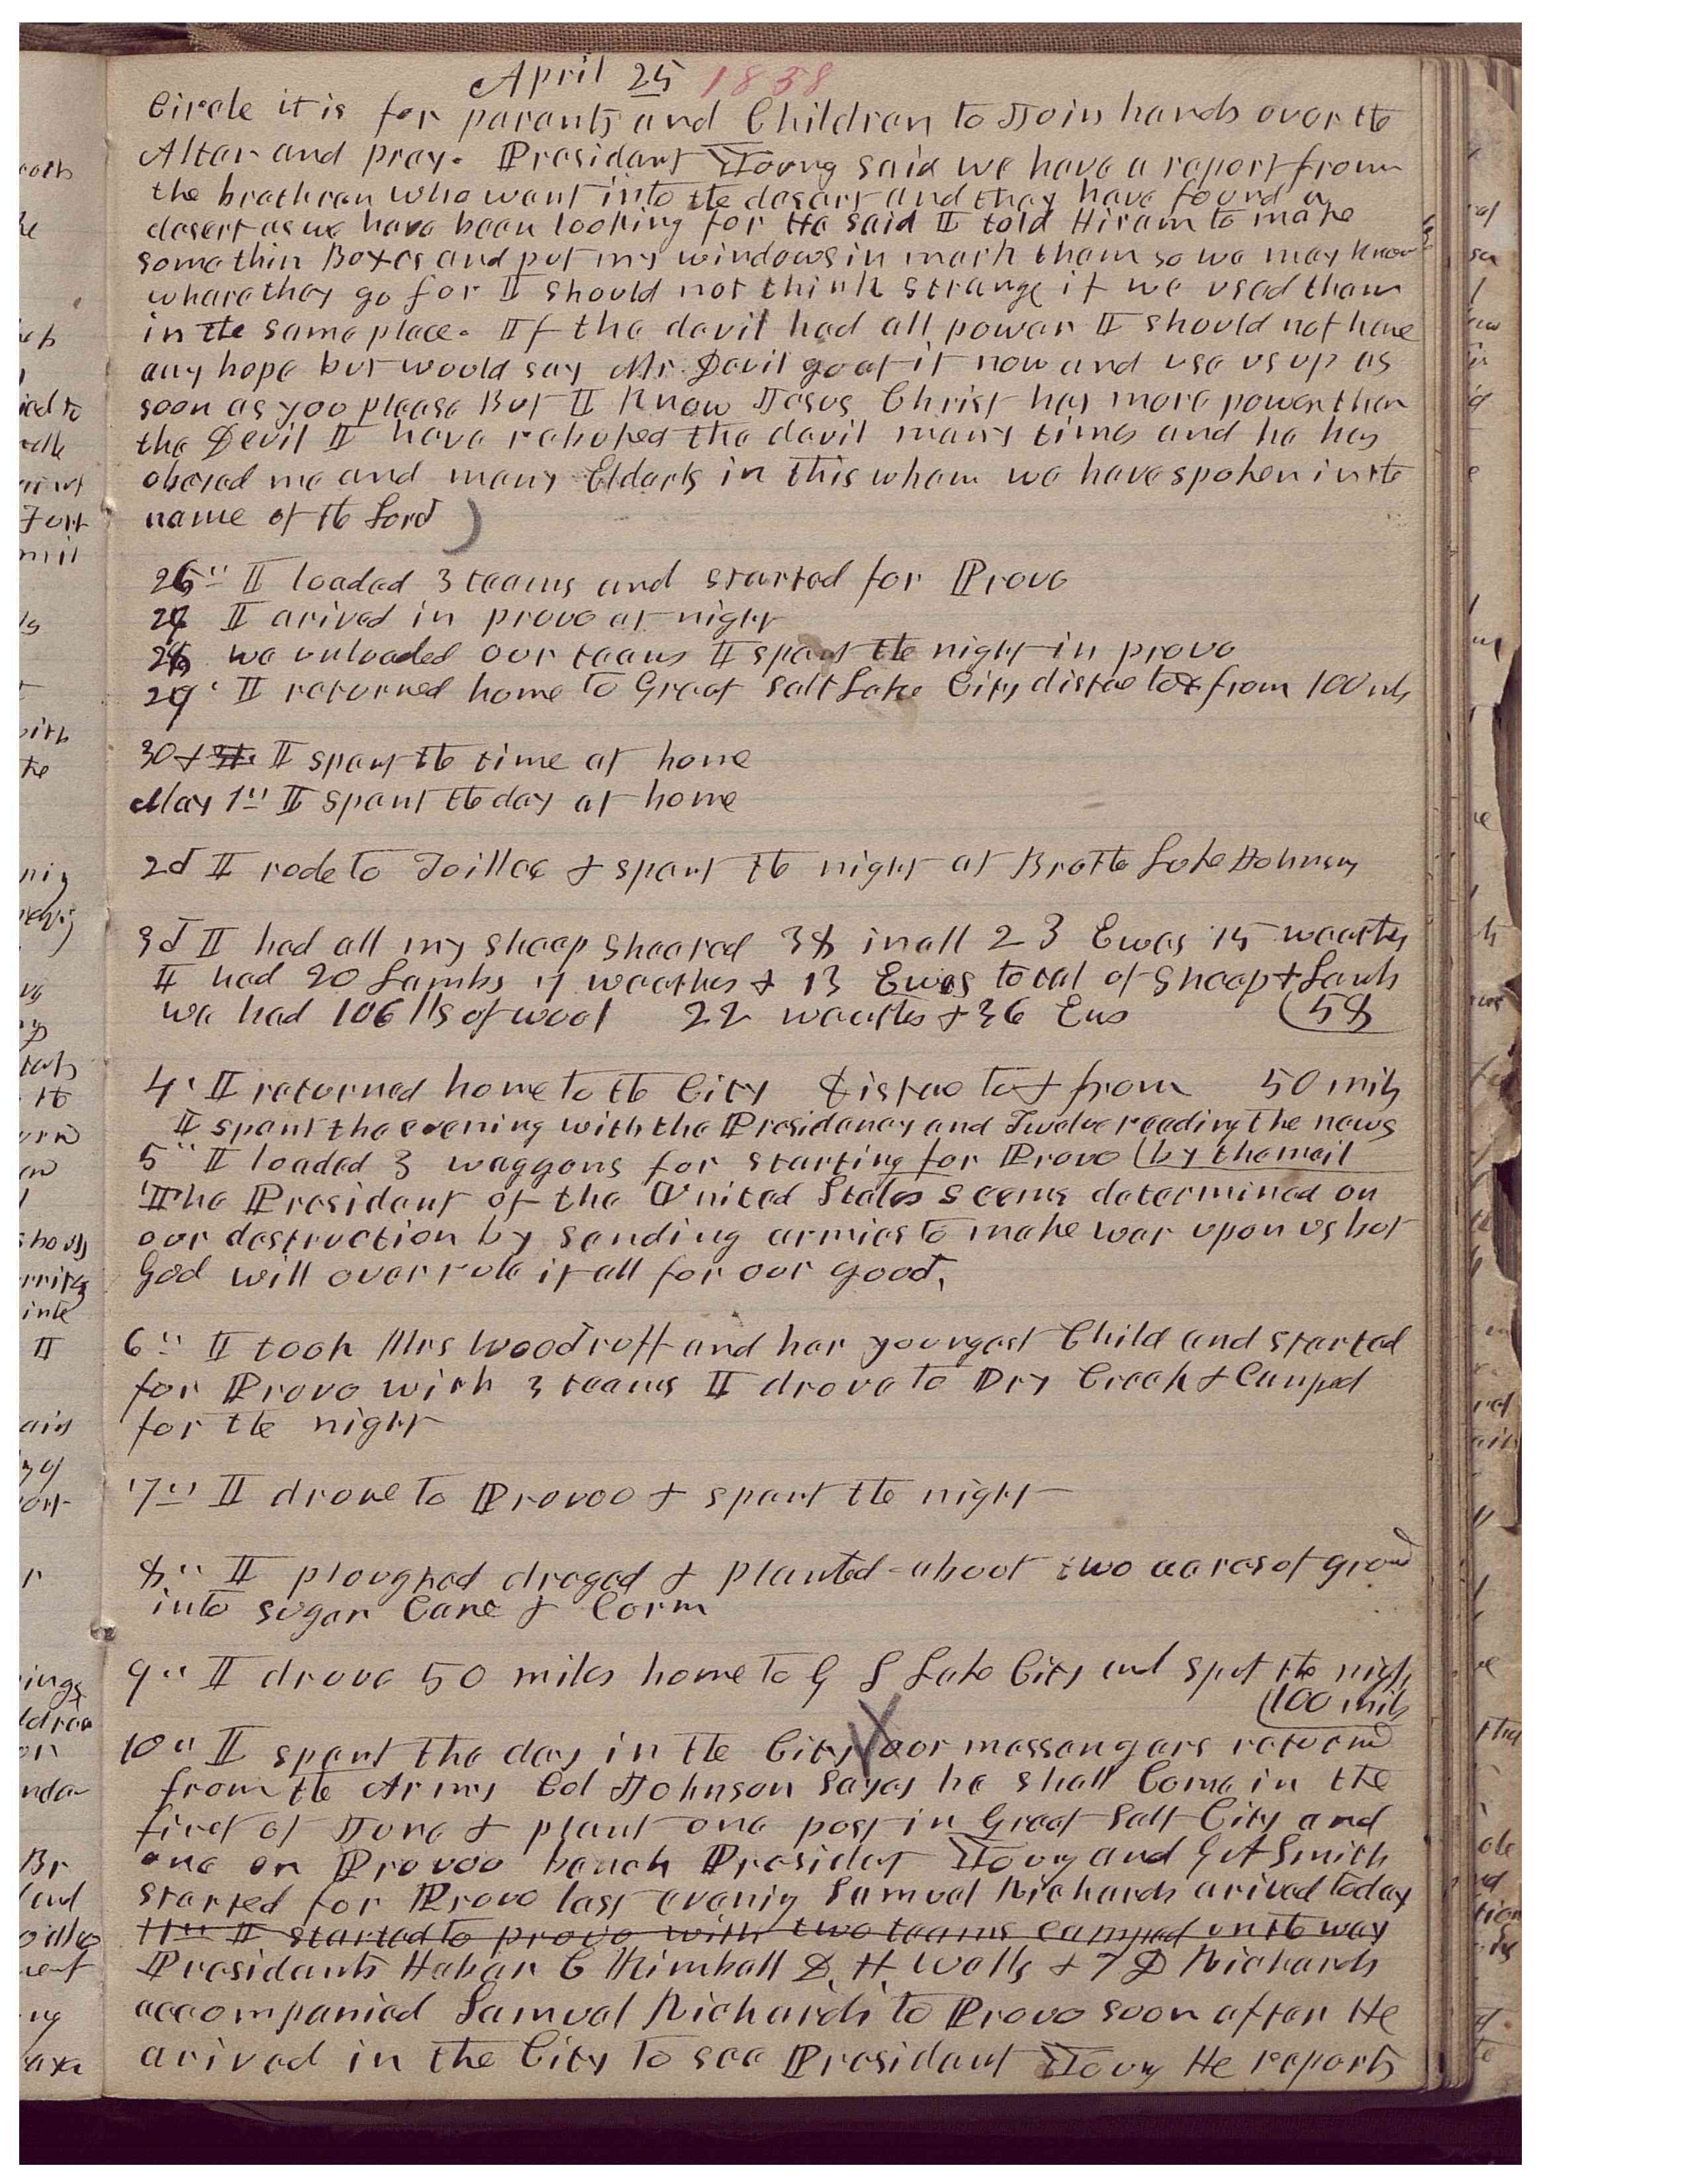 April 25 1858
Circle it is for parants and Children to Join hands over the
Altar and pray. Presidant Young said we have a report from
the brethren who want into the desart and they have found a
desert as we have been looking for He said I told Hiram to make
some thin Boxes and put my windows in mark them so we may know
whare they go for I should not think strange if we used them
in the same place. If the devil had all power I should not have
any hope but would say Mr. Devil go at it now and use us up as
soon as you please But I Know Jesus Christ has more power than
the Devil I have rebuked the devil many times and he has
obeyed me and many Elders in this whom we have spoken in the
name of the Lord )
26" I loaded 3 teams and started for Provo
27 I arived in provo at night
28 we unloaded our teams I spent the night in provo
29" I returned home to Great Salt Lake City distae to & from 100 mls
30 & 31. I spent the time at home
May 1" I spent the day at home
2d I rode to Toillee & spent the night at Brothe Luke Johnson
3d I had all my sheep sheared 38 in all 23 Ewes 15 weathes
I had 20 Lambs 7 weathes & 13 Ewes total of Sheep & Lambs
we had 106 lbs of wool 22 weathes & 36 Ews (58
4" I returned home to the City distae to & from 50 mils
I spent the evening with the Presidency and Twelve reading the news
5" I loaded 3 waggons for starting for Provo (by the mail
The Presidant of the United States seems determined on
our destruction by sending armies to make war upon us but
God will over rule it all for our good.
6" I took Mrs Woodruff and her youngest Child and started
for Provo with 3 teams I drove to Dry Creek & Camped
for the night
7" I drove to Provoo & spent the night
8" I ploughed draged & planted about two acres of groud
into sugar Cane & Corn
9" I drove 50 miles home to G S Lake City and spet the nigh
(100 mils
10" I spent the day in the City X our messengers returnd
from the Army Col Johnson Sayes he shall Come in the
first of June & plant one post in Great Salt City and
one on Provoo bench Presidet Young and G A Smith
started for Provo last evenig Samuel Richards arived today
11" I started to provo with two teams camped on the way
Presidants Heber C Kimball D. H. Wells & F D Richards
accompanied Samuel Richards to Provo soon after He
arived in the City to see Presidant Young He reports